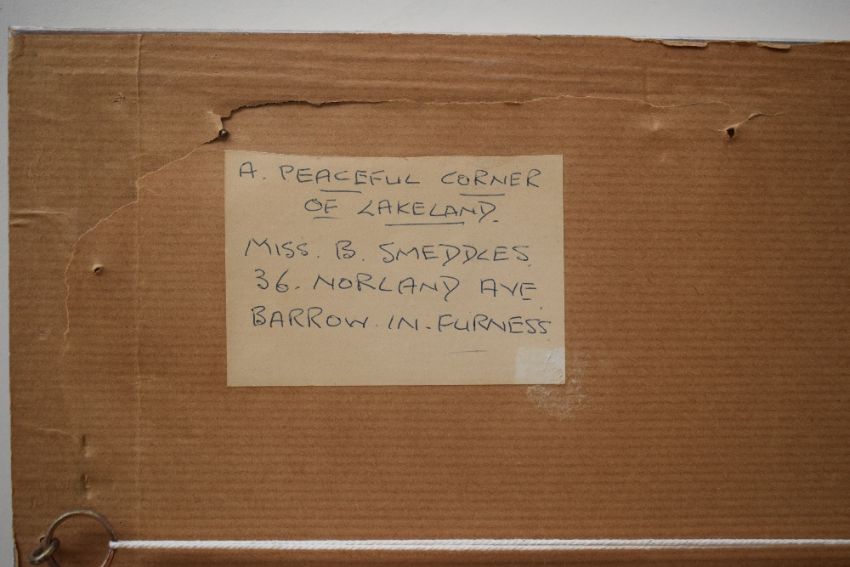 A. PEACEFUL CORNER
OF LAKELAND.
MISS. B. SMEDDLES.
36. NORLAND AVE.
BARROW. IN. FURNESS